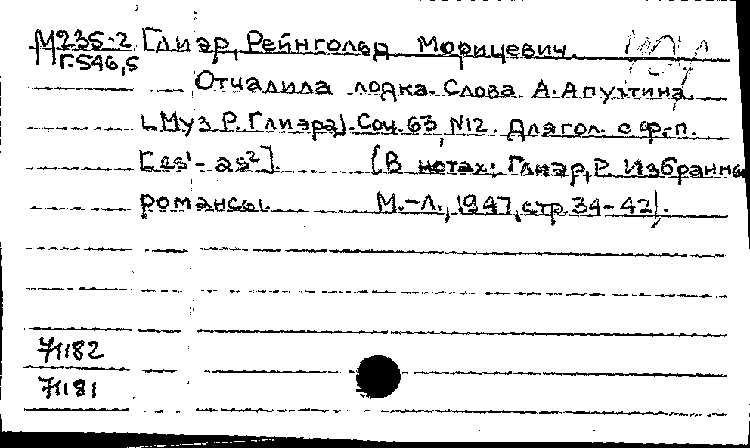 М235-2 Глиэр, Рейнгольд Морицевич.
Г-546,5
Отчалила лодка. Слова А. Апухтина
[Муз. Р. Глиэра]. Соч. 63, N12. Для гол. с ф.-п.
[es¹- as²]. (В нотах: Глиэр, Р. Избранны
романсы. М.-Л., 1947, стр. 34-42).
71182
71181